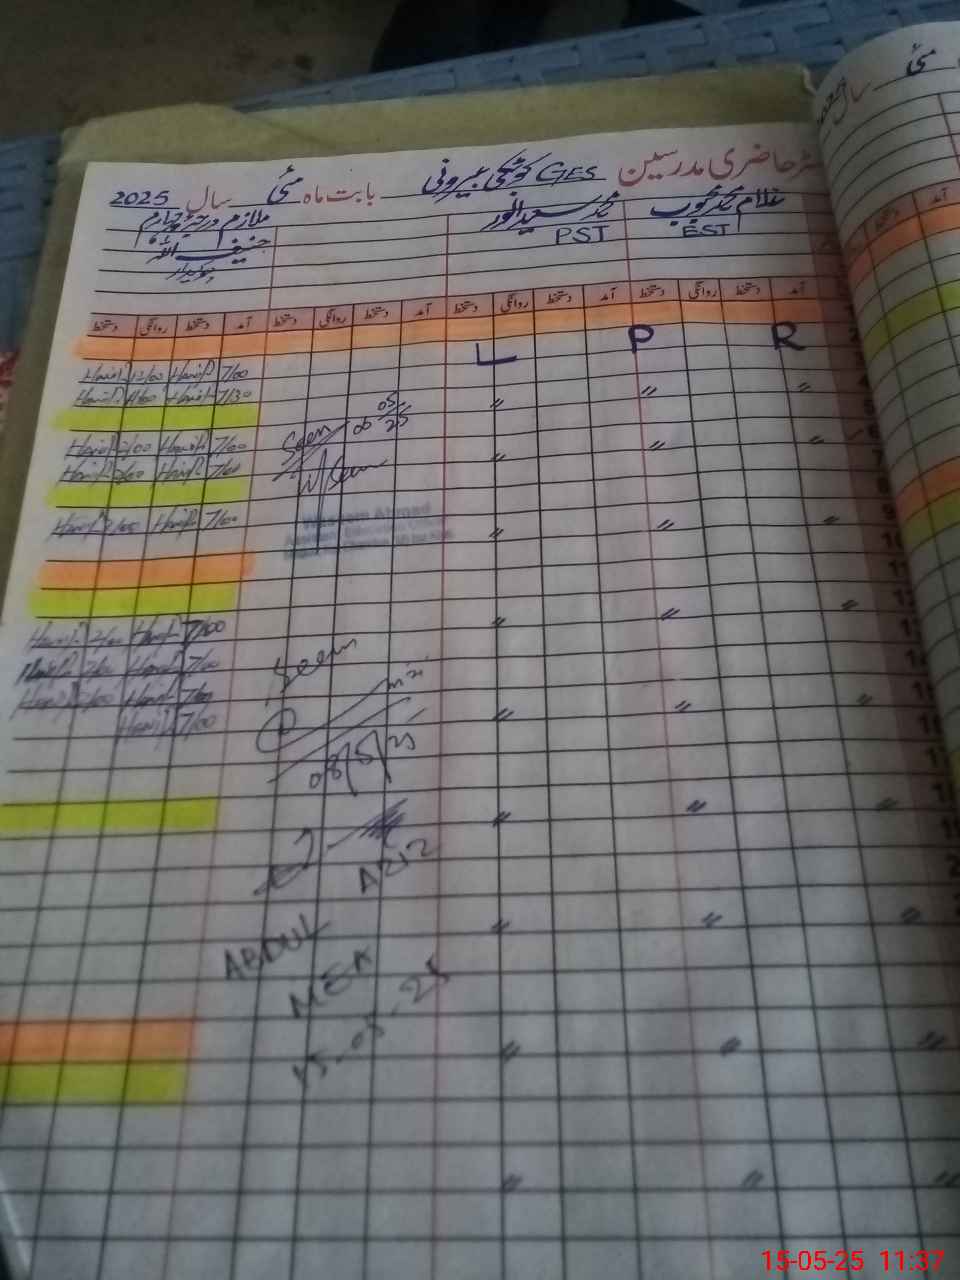 حاضری مدرسین GES کوٹکی بیرونی بابت ماہ مئی سال 2025
غلام محبوب محمد سعید انور ملازم درجہ چہارم
EST PST حنیف اللہ
چوکیدار
آمد دستخط روانگی دستخط آمد دستخط روانگی دستخط آمد دستخط روانگی دستخط آمد دستخط روانگی دستخط
L P R
Hanif 12/00 Hanif 7/00
Hanif 11/00 Hanif 7/30
Seen
05
05
25
Hanif 2/00 Hanif 7/00
Hanif 2/00 Hanif 7/00
Seen
Waseem Ahmad
Hanif 2/00 Hanif 7/00
Hanif 2/00 Hanif 7/00
Hanif 2/00 Hanif 7/00
Hanif 2/00 Hanif 7/00
Hanif 7/00
Seen
08/5/25
ABDUL AZIZ
MEA
15-05-25
مئی
سال
2025
آمد
دستخط
15-05-25 11:37